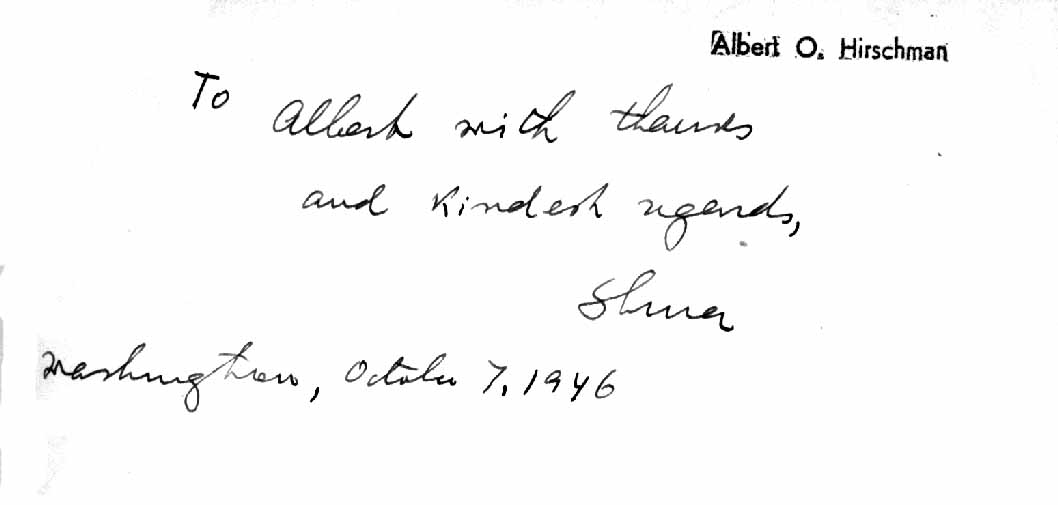 Albert O. Hirschman
To Albert with thanks
and kindest regards,
Shura
Washington, October 7, 1946